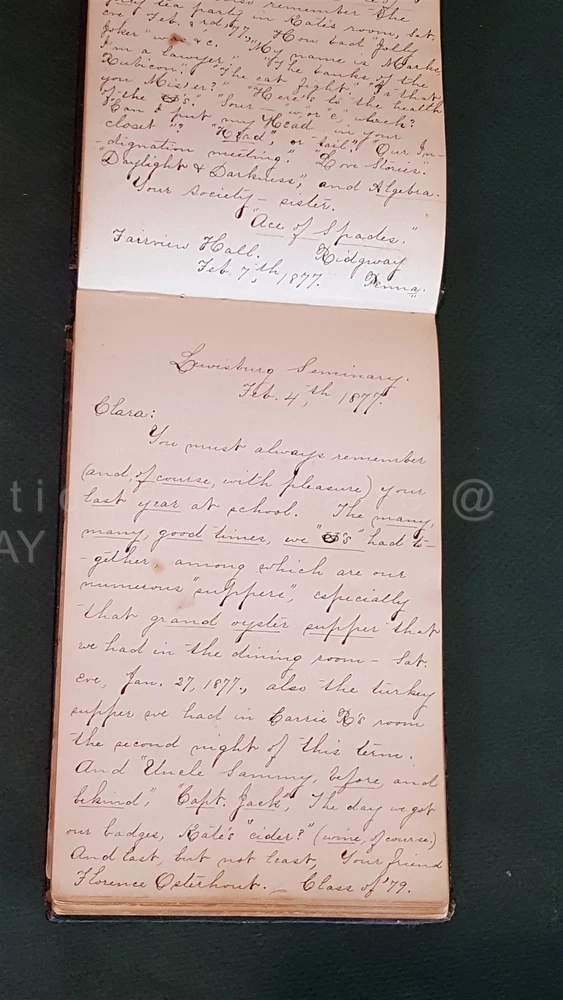 also remember the
tea party in Kate's room, Sat.
eve, Feb. 3rd, '77., "How bad Jolly
Joker" was &c. "My name is Marks,
I'm a lawyer." "The banks of the
Rubicon." "The cat fight." "Is that
you Mister?" "Here's to the health
of the "Sour-"w, or "c, which?
"Can I put my Head, in your
closet"? "Head", or tail? "Our In-
dignation meeting." "Love Stories."
"Daylight & Darkness", and Algebra.
Your society-sister.
"Ace of Spades."
Fairview Hall. Ridgway
Feb. 7,th 1877. Penna.
Lewisburg Seminary.
Feb. 4,th 1877.
Clara:
You must always remember
(and, of course, with pleasure) your
last year at school. The many,
many, good times, we " 's" had to-
gether, among which are our
numerous "suppers", especially
that grand oyster supper that
we had in the dining room- Sat.
eve, Jan. 27, 1877., also the turkey
supper we had in Carrie R's room
the second night of this term.
And "Uncle Sammy, before, and
behind", "Capt. Jack", The day we got
our badges, Kate's "cider?" (wine, of course.)
And last, but not least, Your friend
Florence Osterhout. _ Class of '79.
@
AY